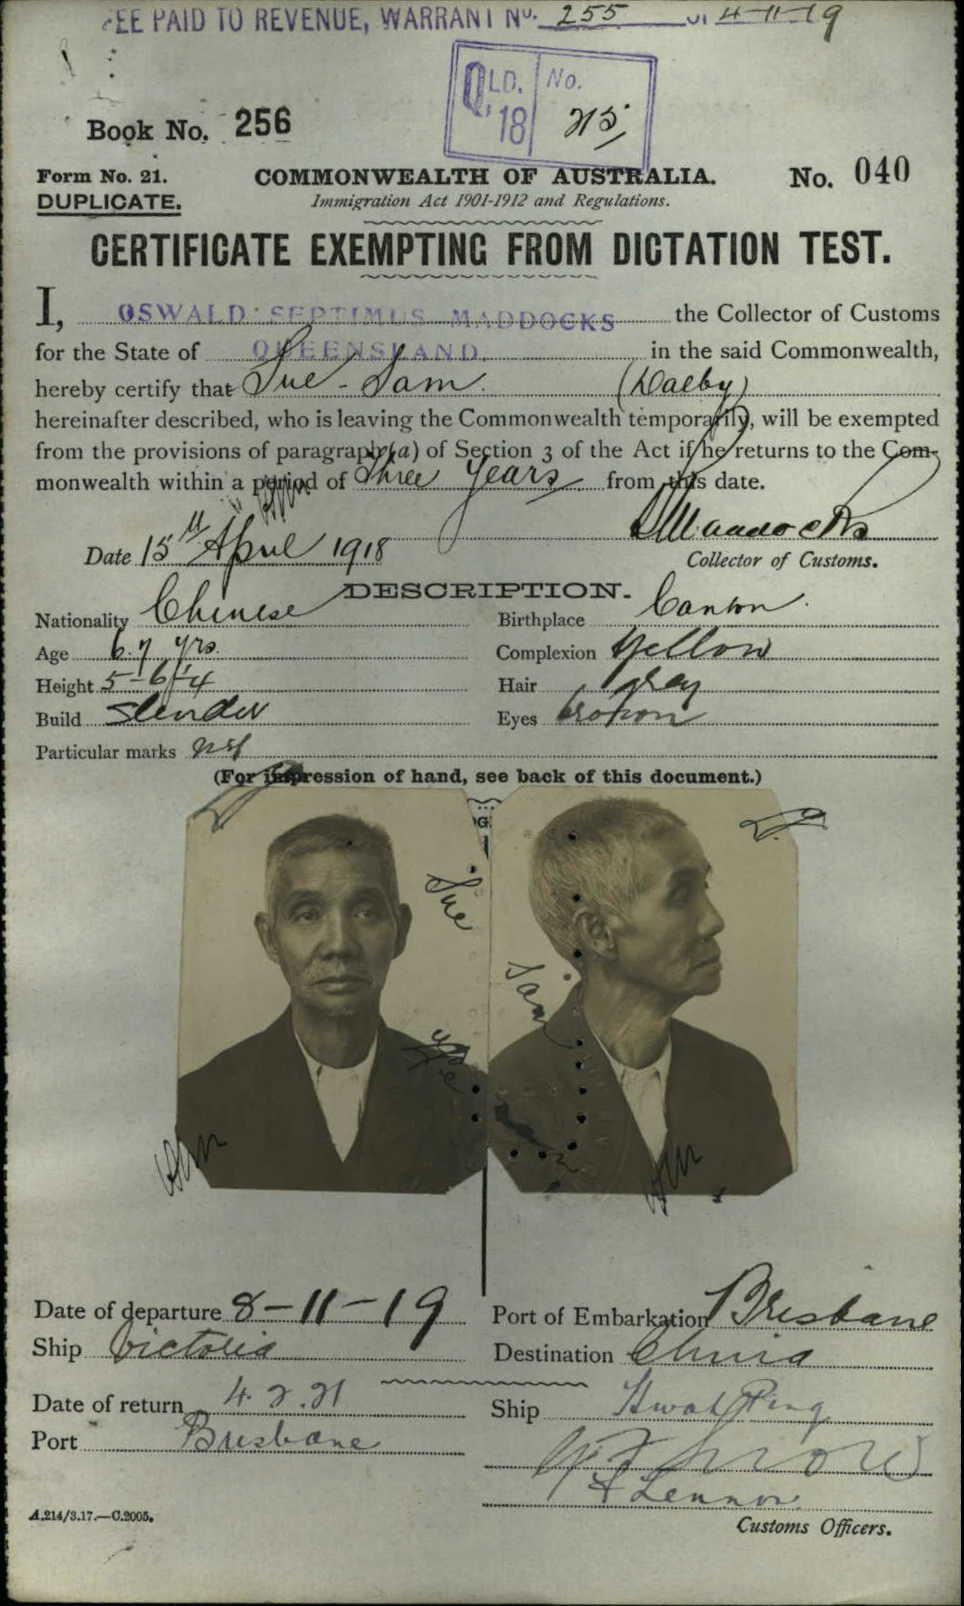 FEE PAID TO REVENUE, WARRANT No. 255 of 4-11-19
QLD. No.
18 215
Book No. 256
Form No. 21. COMMONWEALTH OF AUSTRALIA. No. 040
DUPLICATE. Immigration Act 1901-1912 and Regulations.
CERTIFICATE EXEMPTING FROM DICTATION TEST.
I, OSWALD SEPTIMUS MADDOCKS the Collector of Customs
for the State of QUEENSLAND. in the said Commonwealth,
hereby certify that Sue-Sam. (Dalby)
hereinafter described, who is leaving the Commonwealth temporarily, will be exempted
from the provisions of paragraph (a) of Section 3 of the Act if he returns to the Com-
monwealth within a period of Three Years from this date.
Date 15th April 1918 Maddocks
Collector of Customs.
DESCRIPTION.
Nationality Chinese Birthplace Canton.
Age 67 yrs. Complexion Yellow
Height 5-6¼ Hair gray
Build Slender Eyes brown
Particular marks nil
(For impression of hand, see back of this document.)
Sue
Sam
Date of departure 8-11-19 Port of Embarkation Brisbane
Ship Victoria Destination China
Date of return 4.2.21 Ship Hwah Ping
Port Brisbane
Lennon
A.214/3.17.—C.2005. Customs Officers.